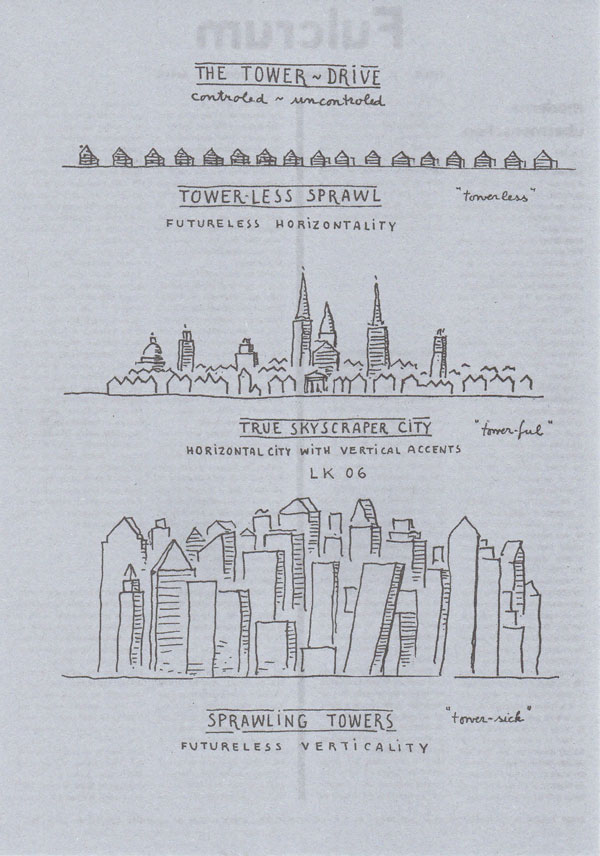 Fulcrum
THE TOWER ~ DRIVE
controled ~ uncontroled
TOWER-LESS SPRAWL
"towerless"
FUTURELESS HORIZONTALITY
TRUE SKYSCRAPER CITY
"tower-ful"
HORIZONTAL CITY WITH VERTICAL ACCENTS
LK 06
SPRAWLING TOWERS
"tower-sick"
FUTURELESS VERTICALITY